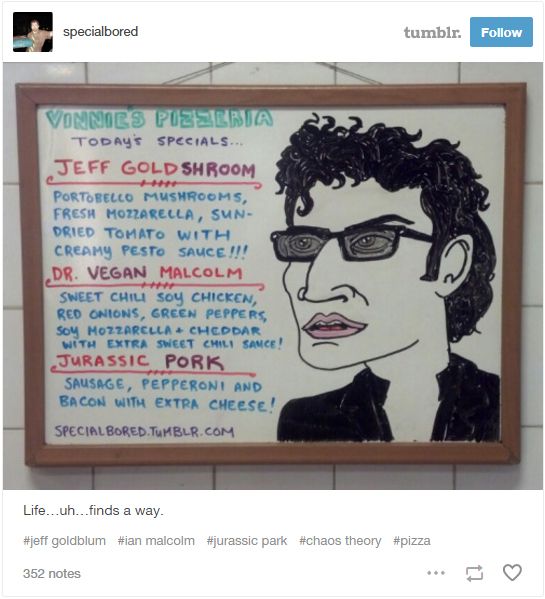 specialbored
tumblr. Follow
VINNIE'S PIZZERIA
TODAY'S SPECIALS...
JEFF GOLDSHROOM
PORTOBELLO MUSHROOMS,
FRESH MOZZARELLA, SUN-
DRIED TOMATO WITH
CREAMY PESTO SAUCE!!!
DR. VEGAN MALCOLM
SWEET CHILI SOY CHICKEN,
RED ONIONS, GREEN PEPPERS,
SOY MOZZARELLA + CHEDDAR
WITH EXTRA SWEET CHILI SAUCE!
JURASSIC PORK
SAUSAGE, PEPPERONI AND
BACON WITH EXTRA CHEESE!
SPECIALBORED.TUMBLR.COM
Life...uh...finds a way.
#jeff goldblum #ian malcolm #jurassic park #chaos theory #pizza
352 notes